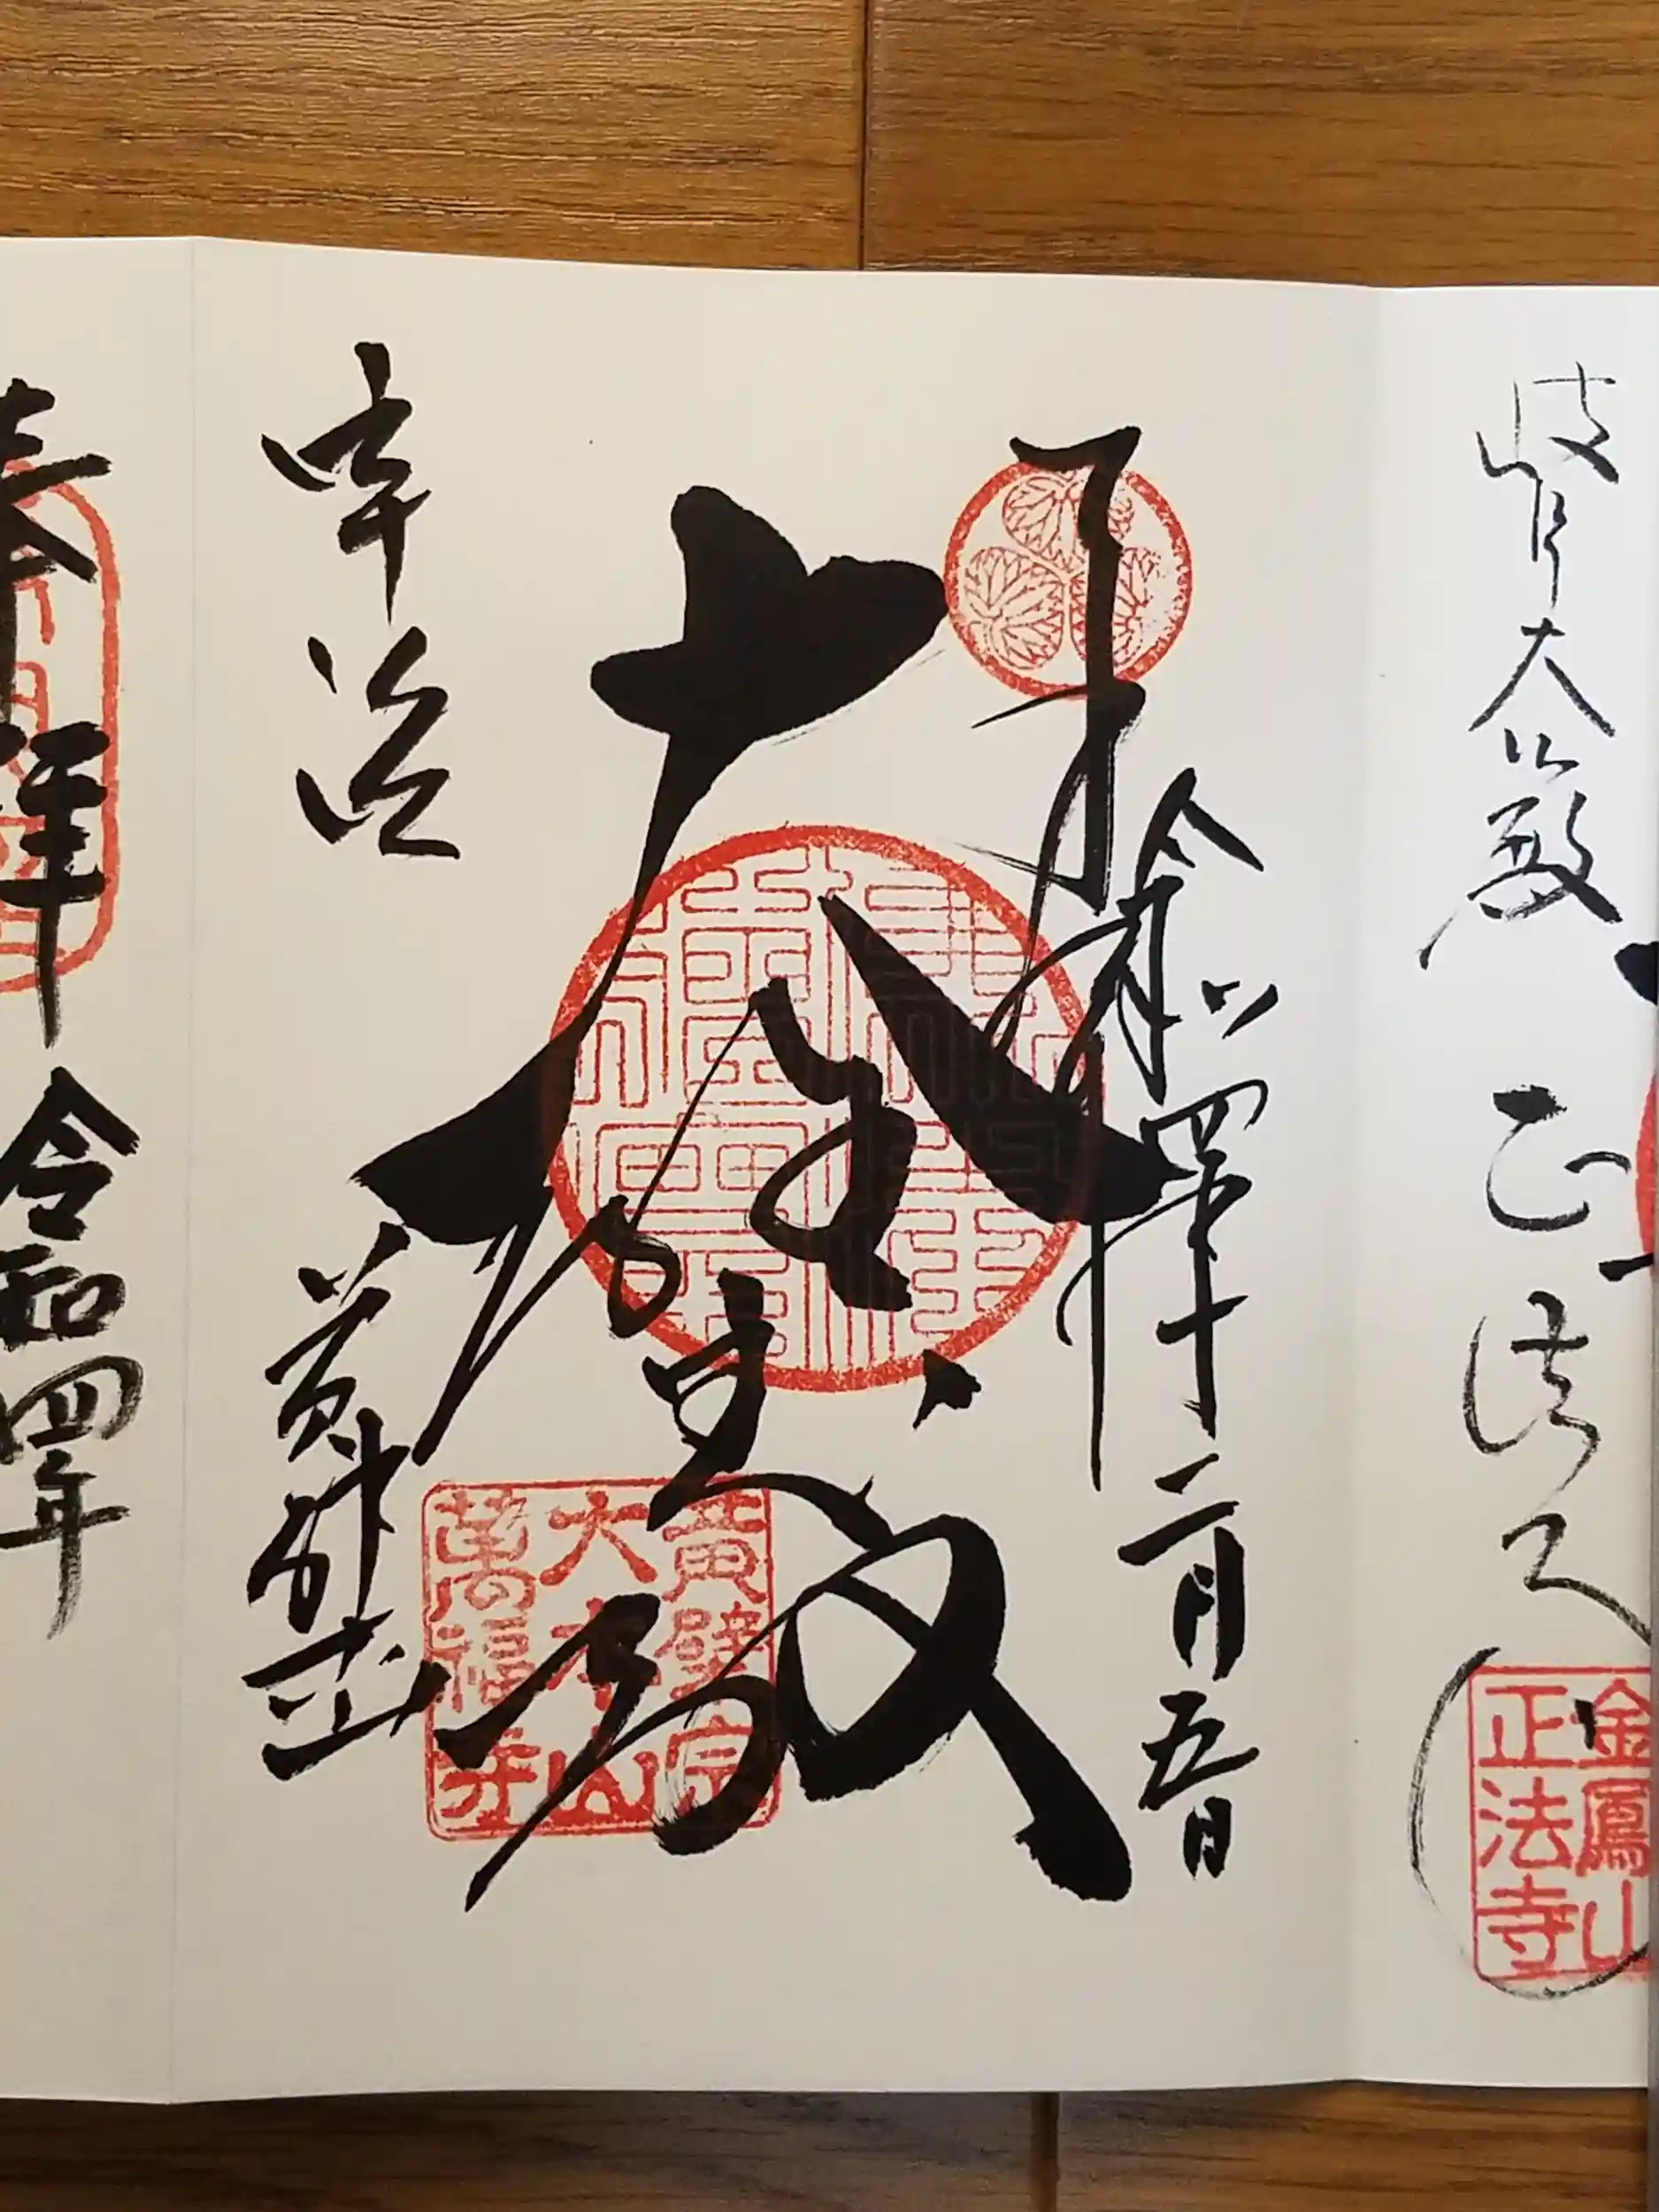 岐阜大仏殿
正法寺
金鳳山
正法寺
奉拝
令和四年二月五日
大雄寶殿
黄檗宗
大本山
萬福寺
宇治
黄檗山
奉拝
令和四年